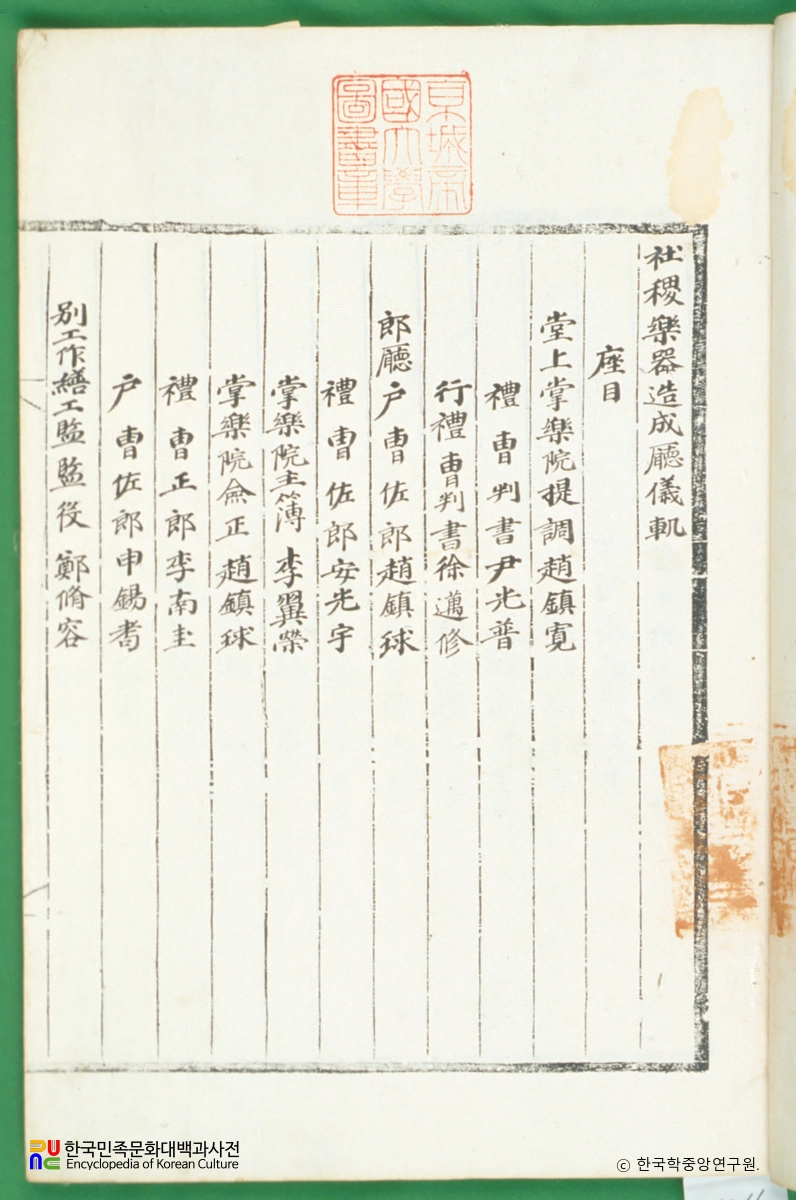 京城帝
國大學
圖書章
社稷樂器造成廳儀軌
座目
堂上掌樂院提調趙鎭寛
禮曺判書尹光普
行禮曺判書徐邁修
郎廳戶曺佐郎趙鎭球
禮曺佐郎安光宇
掌樂院主簿李翼榮
掌樂院僉正趙鎭球
禮曺正郎李南圭
戶曺佐郎申錫耉
別工作繕工監監役鄭脩容
한국민족문화대백과사전
Encyclopedia of Korean Culture
© 한국학중앙연구원.